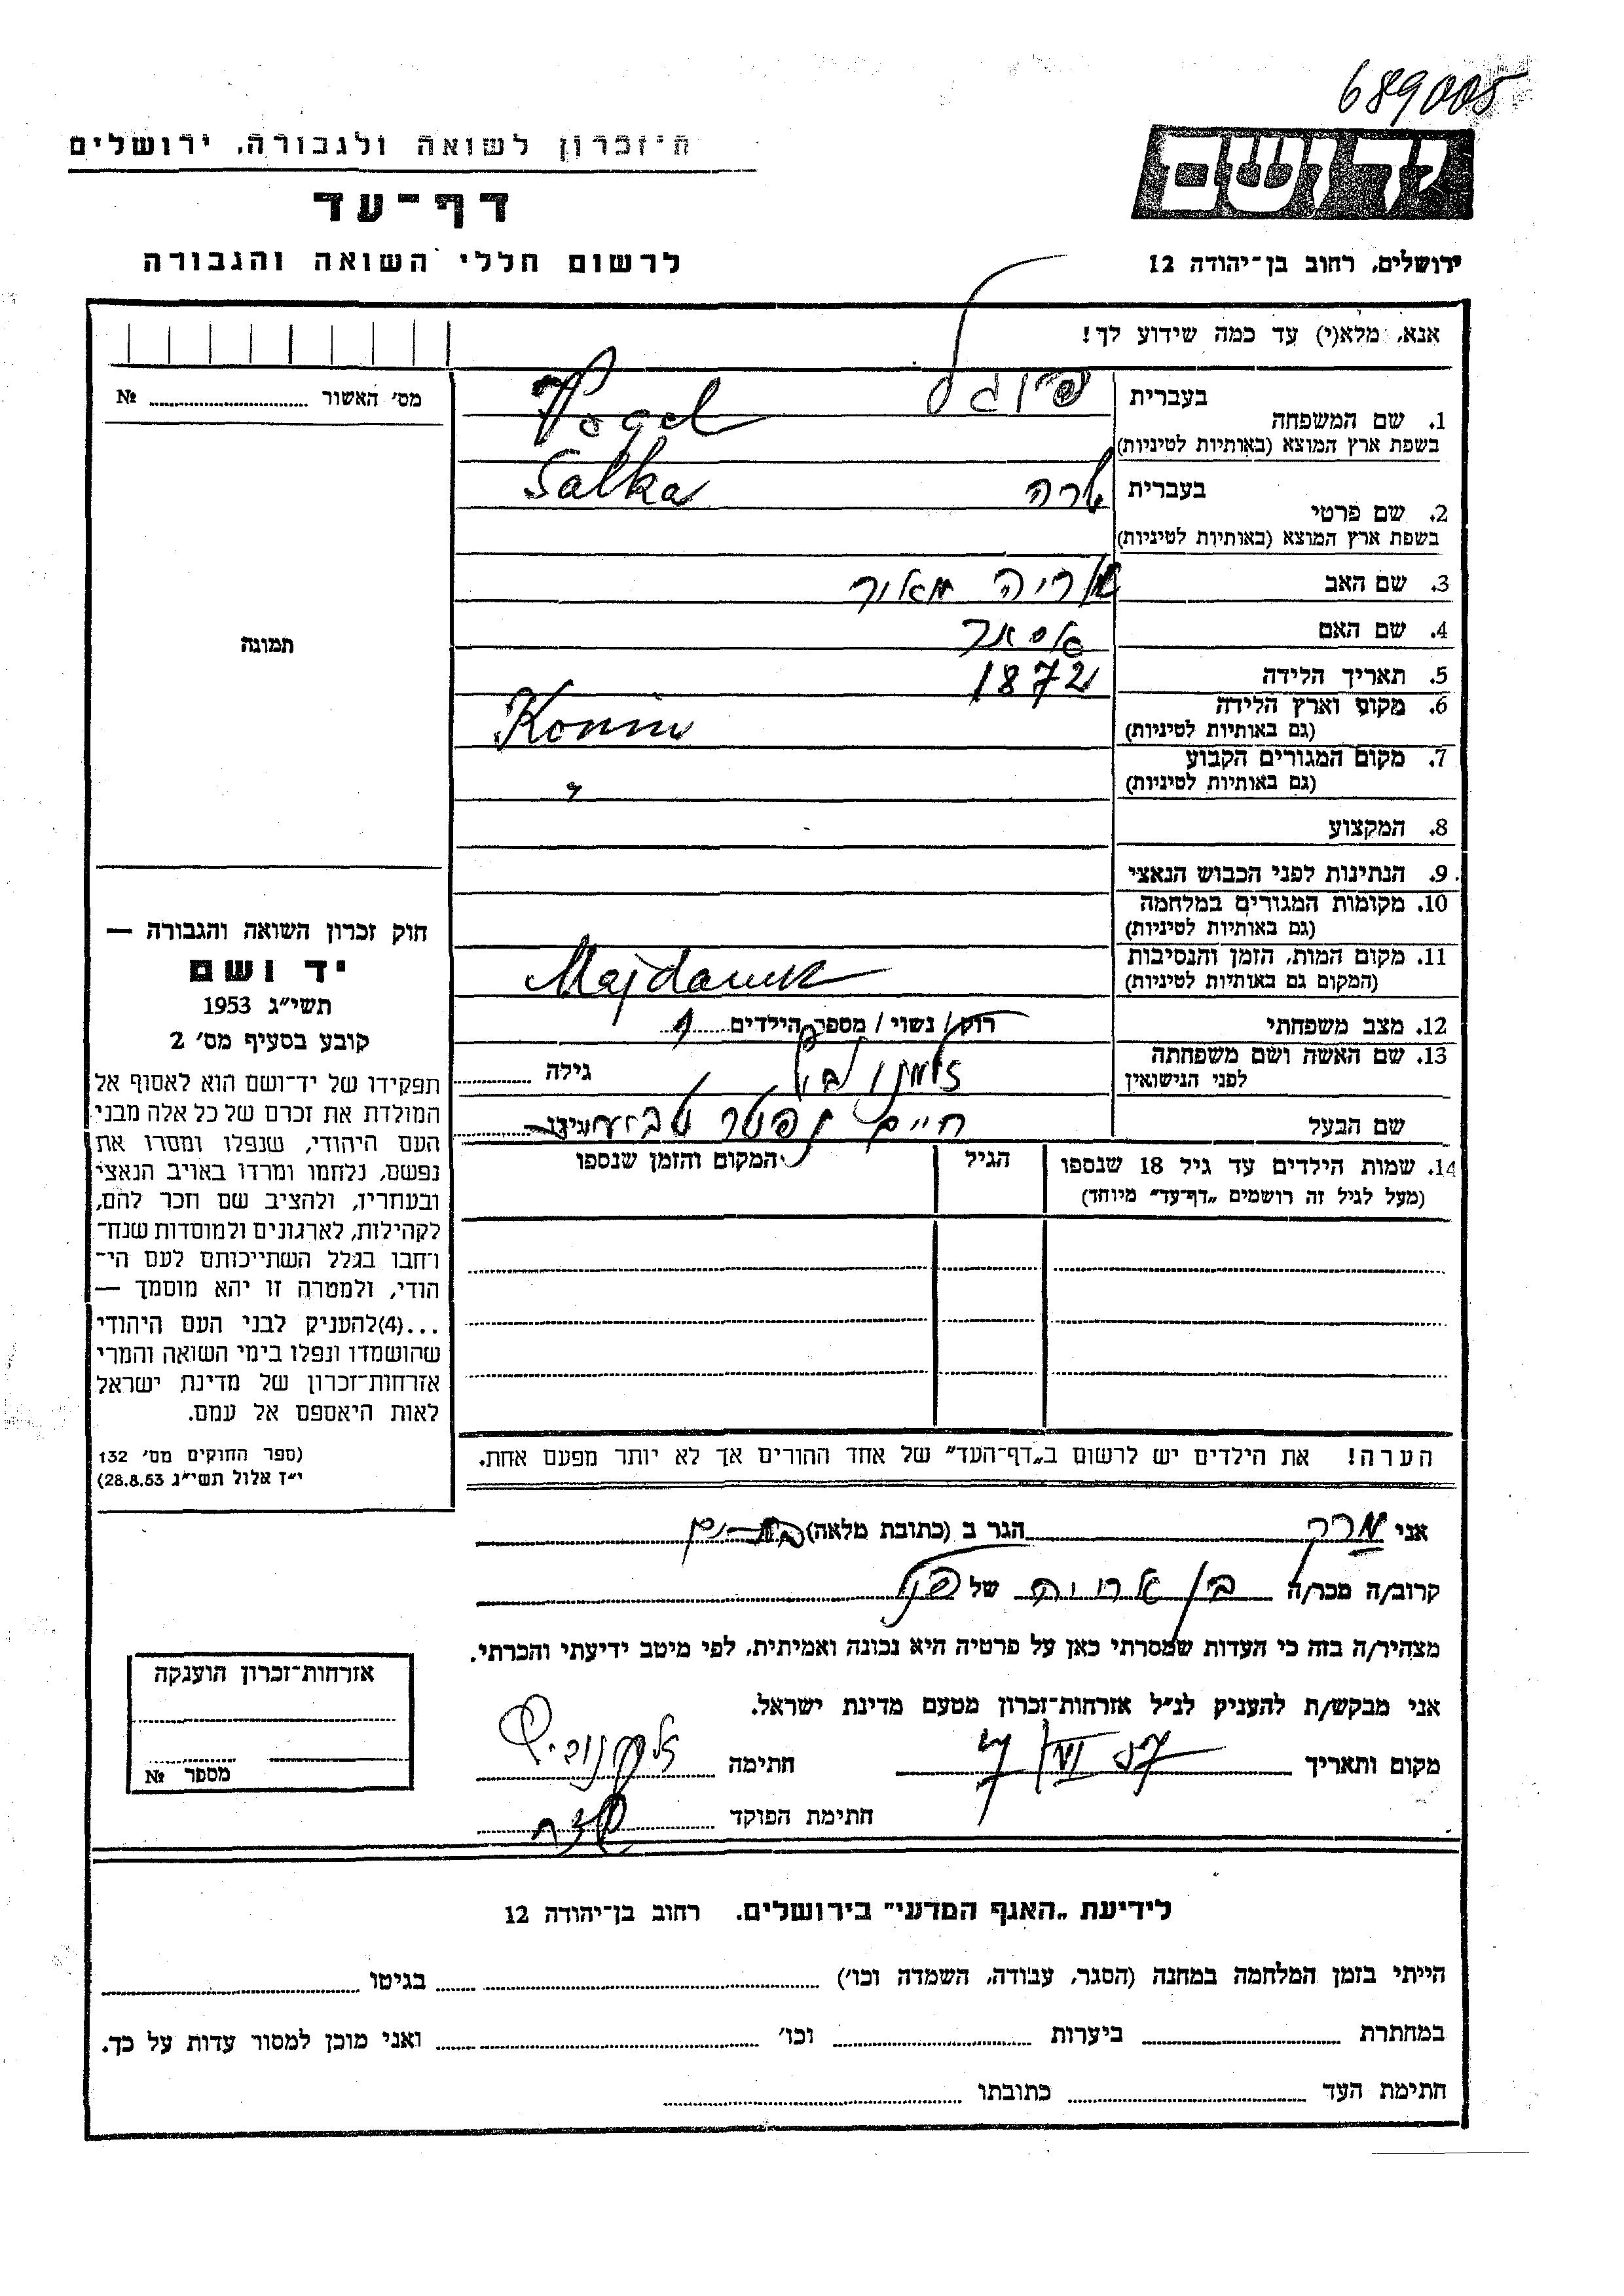 689005
הזכרון לשואה ולגבורה, ירושלים
דף-עד
לרשום חללי השואה והגבורה
יד ושם
ירושלים, רחוב בן-יהודה 12
אנא, מלא(י) עד כמה שידוע לך!
מס׳ האשור № 
תמונה
1. שם המשפחה
בעברית פוגל
בשפת ארץ המוצא (באותיות לטיניות) Vogel
2. שם פרטי
בעברית שרה
בשפת ארץ המוצא (באותיות לטיניות) Salka
3. שם האב אריה מאיר
4. שם האם אסתר
5. תאריך הלידה 1872
6. מקום וארץ הלידה
(גם באותיות לטיניות) Konin
7. מקום המגורים הקבוע
(גם באותיות לטיניות) "
8. המקצוע
9. הנתינות לפני הכבוש הנאצי
10. מקומות המגורים במלחמה
(גם באותיות לטיניות)
11. מקום המות, הזמן והנסיבות
(המקום גם באותיות לטיניות) Majdanek
12. מצב משפחתי רוק / נשוי / מספר הילדים 1
13. שם האשה ושם משפחתה
לפני הנישואין גילה
שם הבעל חיים
14. שמות הילדים עד גיל 18 שנספו
(מעל לגיל זה רושמים „דף-עד״ מיוחד)
הגיל
המקום והזמן שנספו
חוק זכרון השואה והגבורה —
יד ושם
תשי״ג 1953
קובע בסעיף מס׳ 2
תפקידו של יד-ושם הוא לאסוף אל
המולדת את זכרם של כל אלה מבני
העם היהודי, שנפלו ומסרו את
נפשם, נלחמו ומרדו באויב הנאצי
ובעוזריו, ולהציב שם וזכר להם,
לקהילות, לארגונים ולמוסדות שנח-
רחבו בגלל השתייכותם לעם הי-
הודי, ולמטרה זו יהא מוסמך —
...(4)להעניק לבני העם היהודי
שהושמדו ונפלו בימי השואה והמרי
אזרחות-זכרון של מדינת ישראל
לאות היאספם אל עמם.
(ספר החוקים מס׳ 132
י״ז אלול תשי״ג 28.8.53)
הערה! את הילדים יש לרשום ב„דף-העד״ של אחד ההורים אך לא יותר מפעם אחת.
אני הגר ב (כתובת מלאה)
קרוב/ה מכר/ה בן אריה של
מצהיר/ה בזה כי העדות שמסרתי כאן על פרטיה היא נכונה ואמיתית, לפי מיטב ידיעתי והכרתי.
אני מבקש/ת להעניק לנ״ל אזרחות-זכרון מטעם מדינת ישראל.
מקום ותאריך חתימה
חתימת הפוקד
אזרחות-זכרון הוענקה
מספר №
לידיעת „האגף המדעי״ בירושלים. רחוב בן-יהודה 12
הייתי בזמן המלחמה במחנה (הסגר, עבודה, השמדה וכו׳) בגיטו
במחתרת ביערות וכו׳ ואני מוכן למסור עדות על כך.
חתימת העד כתובתו